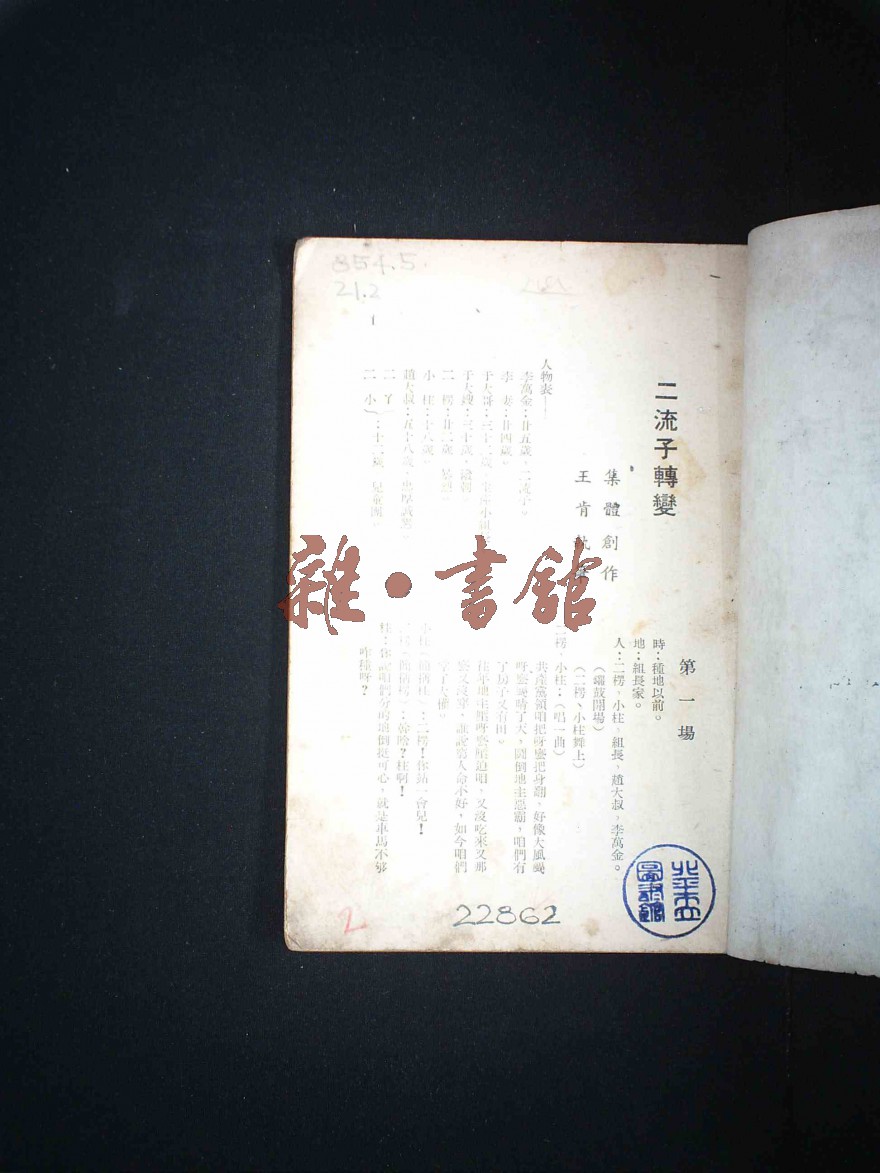 854.5
21.2
二流子轉變
集體創作
王肯執筆
人物表——
李萬金：廿五歲，二流子。
李　妻：廿四歲。
于大哥：三十二歲，生產小組
于大嫂：三十歲，
二　楞：廿二歲，
小　柱：十八歲。
趙大叔：五十八歲，忠厚
二　丫
二　小}：十二歲，兒童團。
第一場
時：種地以前。
地：組長家。
人：二楞，小柱，組長，趙大叔，李萬金。
（場鼓開場）
（二楞、小柱舞上）
二楞、小柱：（唱一曲）
共產黨領咱把呀麼把身翻，好像大風變
呀麼變晴了天，鬪倒地主惡霸，咱們有
了房子又有田。
往年地主壓呀麼壓迫咱，又沒吃來又那
麼又沒穿，誰說窮人命不好，如今咱們
小柱（ ）：二楞！你站一會兒！
二楞（ ）：幹啥？柱啊！
柱：你說咱們分的地倒挺可心，就是車馬不够
咋種呀？
22862
2
北平
圖書館
雜·書館